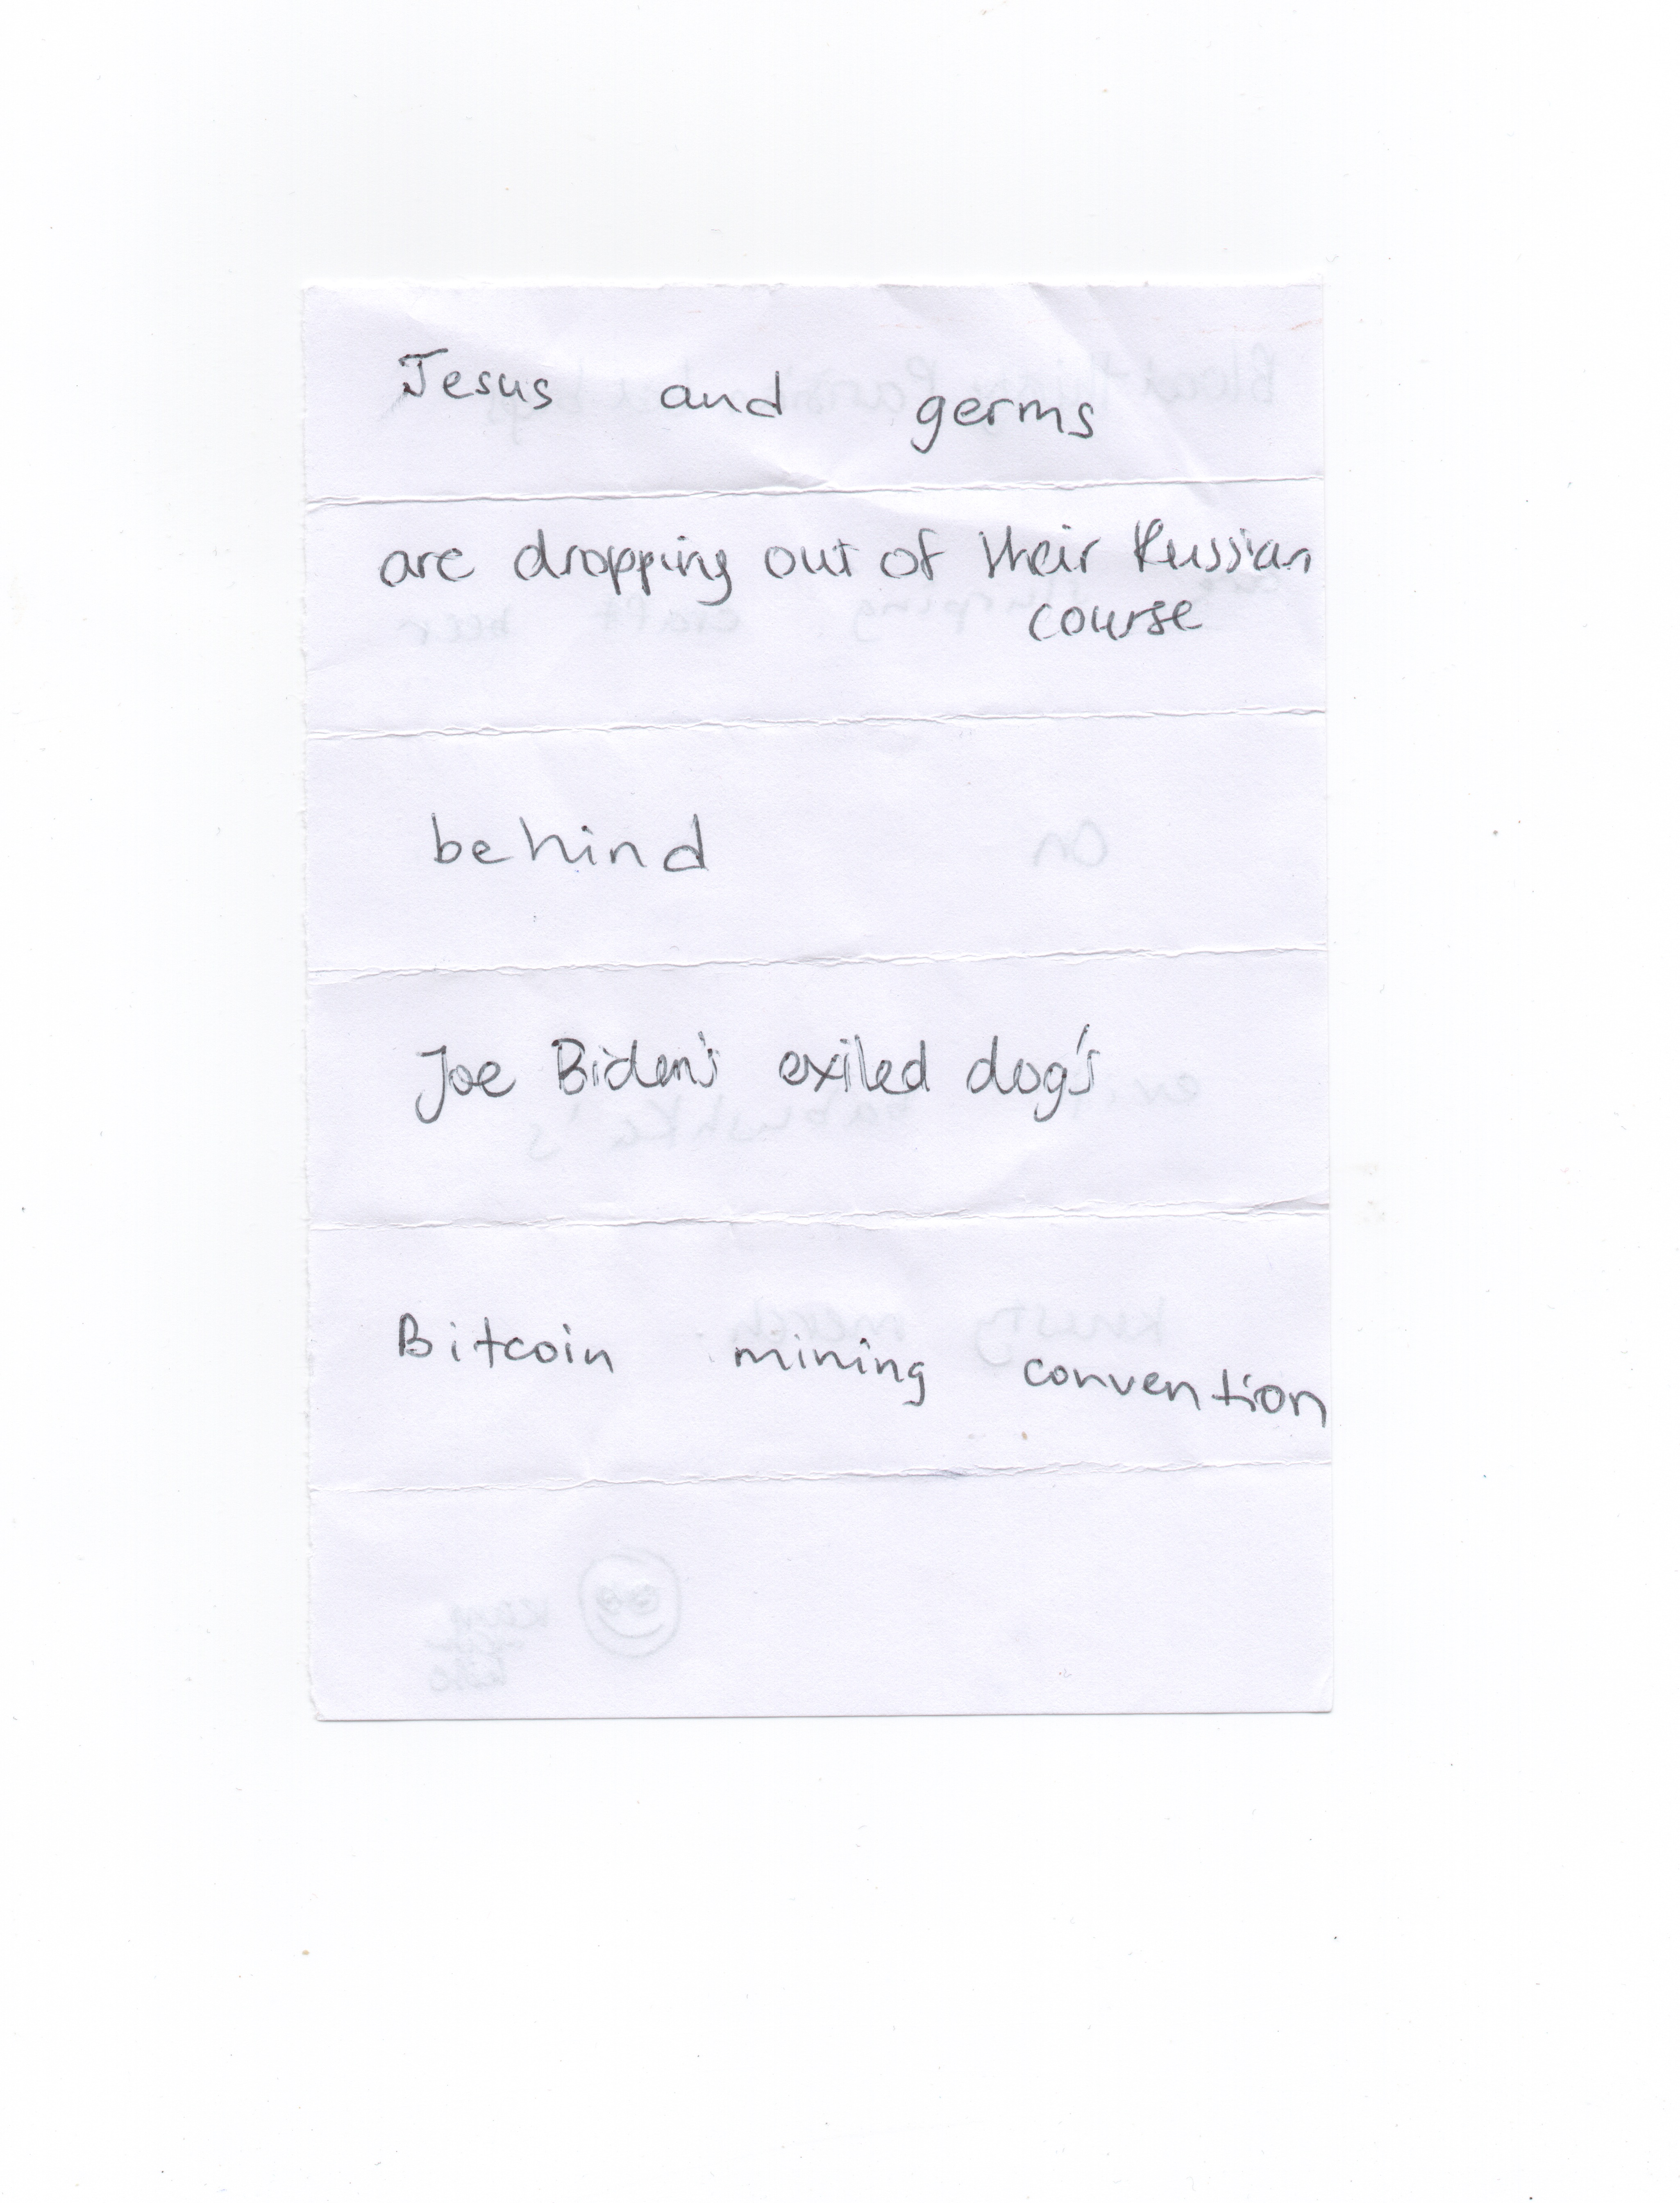 Jesus and germs
are dropping out of their Russian
course
behind
Joe Biden's exiled dog's
Bitcoin mining convention